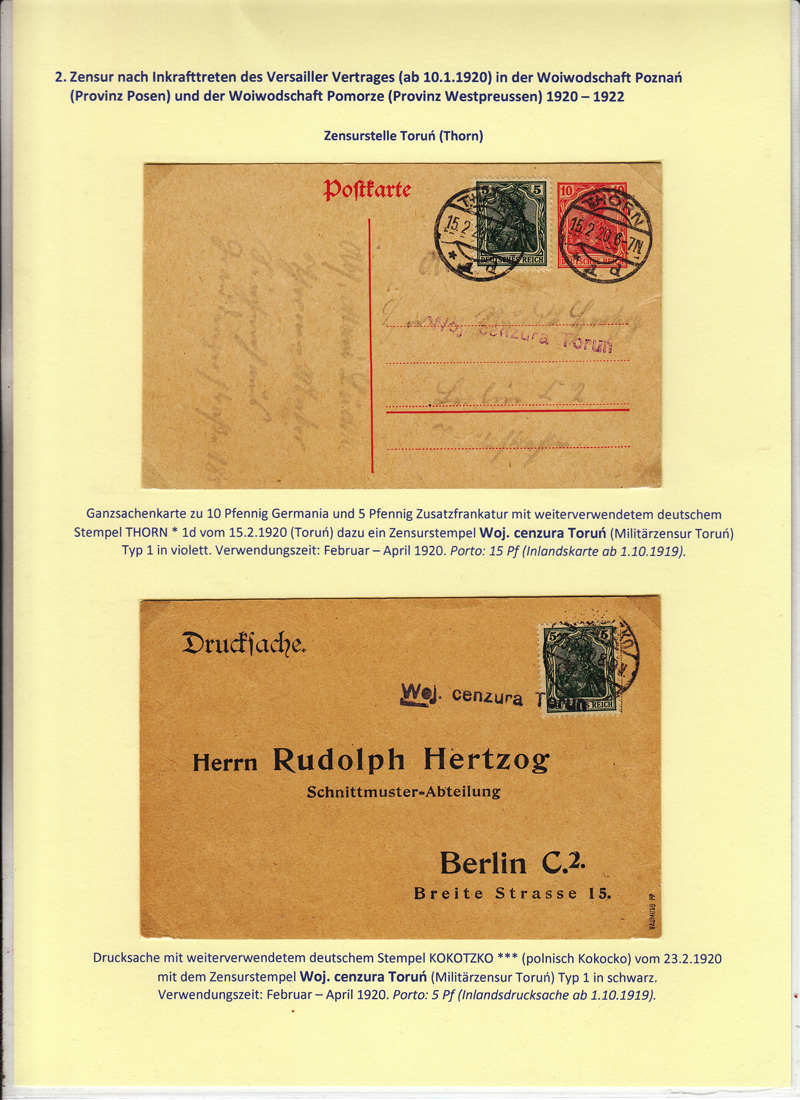 2. Zensur nach Inkrafttreten des Versailler Vertrages (ab 10.1.1920) in der Woiwodschaft Poznań
(Provinz Posen) und der Woiwodschaft Pomorze (Provinz Westpreussen) 1920 – 1922
Zensurstelle Toruń (Thorn)
Postkarte
5 5
10 10
THORN
15.2.20.6-7N.
* 1d
DEUTSCHES REICH
DEUTSCHES REICH
Woj. cenzura Toruń
Berlin C 2
Ganzsachenkarte zu 10 Pfennig Germania und 5 Pfennig Zusatzfrankatur mit weiterverwendetem deutschem
Stempel THORN * 1d vom 15.2.1920 (Toruń) dazu ein Zensurstempel Woj. cenzura Toruń (Militärzensur Toruń)
Typ 1 in violett. Verwendungszeit: Februar – April 1920. Porto: 15 Pf (Inlandskarte ab 1.10.1919).
Drucksache.
5
Woj. cenzura Toruń
Herrn Rudolph Hertzog
Schnittmuster-Abteilung
Berlin C.2.
Breite Strasse 15.
Drucksache mit weiterverwendetem deutschem Stempel KOKOTZKO *** (polnisch Kokocko) vom 23.2.1920
mit dem Zensurstempel Woj. cenzura Toruń (Militärzensur Toruń) Typ 1 in schwarz.
Verwendungszeit: Februar – April 1920. Porto: 5 Pf (Inlandsdrucksache ab 1.10.1919).